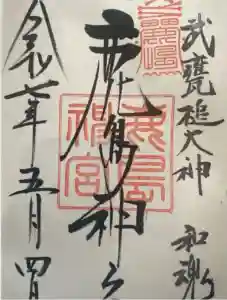 武甕槌大神 和魂
鹿島神宮
令和七年五月四日
鹿島神宮